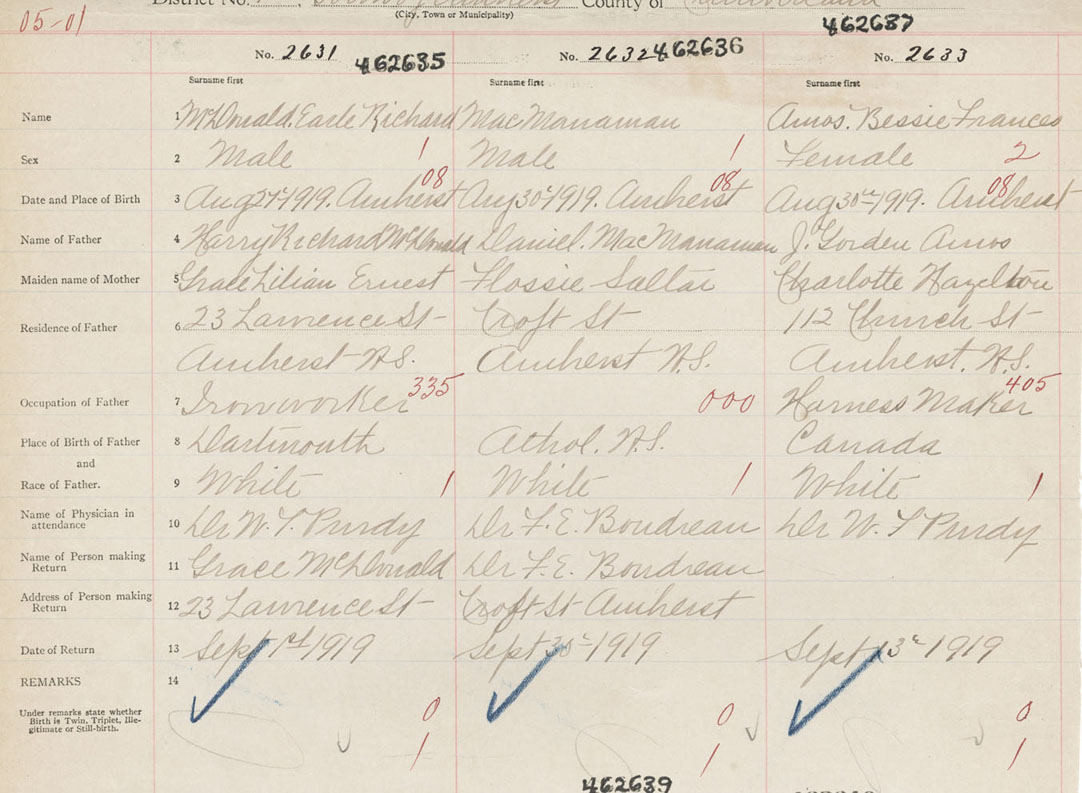 District No. County of
(City, Town or Municipality)
05-01
462637
No. 2631 462635 No. 2632 462636 No. 2633
Surname first Surname first Surname first
Name 1 McDonald. Earle Richard MacManaman Amos. Bessie Frances
Sex 2 Male 1 Male 1 Female 2
08 08 08
Date and Place of Birth 3 Aug 27th 1919. Amherst Aug 30th 1919. Amherst Aug 30th 1919. Amherst
Name of Father 4 Harry Richard McDonald Daniel. MacManaman J. Gorden Amos
Maiden name of Mother 5 Grace Lilian Ernest Flossie Saltai Charlotte Hazelton
Residence of Father 6 23 Lawrence St Croft St 112 Church St
Amherst N.S. Amherst N.S. Amherst. N.S.
335 405
Occupation of Father 7 Ironworker 000 Harness Maker
Place of Birth of Father 8 Dartmouth Athol. N.S. Canada
and
Race of Father. 9 White 1 White 1 White 1
Name of Physician in
attendance 10 Dr W. T. Purdy Dr F. E. Boudreau Dr W. T Purdy
Name of Person making
Return 11 Grace McDonald Dr F. E. Boudreau
Address of Person making
Return 12 23 Lawrence St Croft St Amherst
Date of Return 13 Sept 1st 1919 Sept 1919 Sept 13th 1919
REMARKS 14
Under remarks state whether
Birth is Twin, Triplet, Ille-
gitimate or Still-birth.
0 0 0
1 1 1
462639